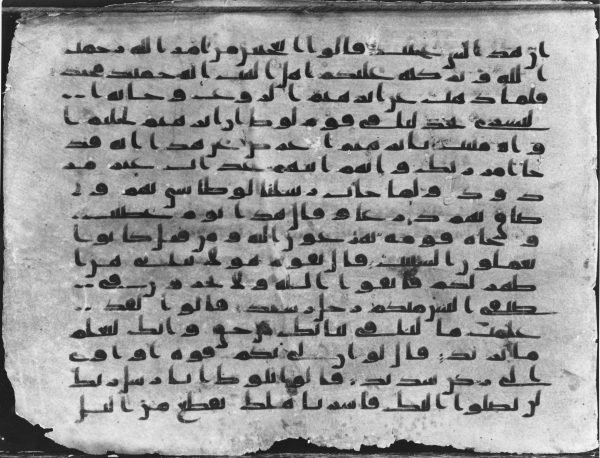 ان هذا لشي عجيب قالوا اتعجبين من امر الله رحمت
الله وبركته عليكم اهل البيت انه حميد مجيد
فلما ذهب عن ابرهيم الروع وجاته ا
لبشرى يجدلنا في قوم لوط ان ابرهيم لحليم ا
واه منيب يابرهيم اعرض عن هذا انه قد
جا امر ربك وانهم اتيهم عذاب غير مر
دود ولما جات رسلنا لوطا سي بهم و
ضاق بهم ذرعا وقال هذا يوم عصيب
وجاه قومه يهرعون اليه ومن قبل كانوا
يعملون السيت قال يقوم هولا بناتي هن ا
طهر لكم فاتقوا الله ولا تخزون في
ضيفي اليس منكم رجل رشيد قالوا لقد
علمت ما لنا في بناتك من حق وانك لتعلم
ما نريد قال لو ان لي بكم قوة او اوي
الى ركن شديد قالوا يلوط انا رسل ربك
لن يصلوا اليك فاسر باهلك بقطع من اليل